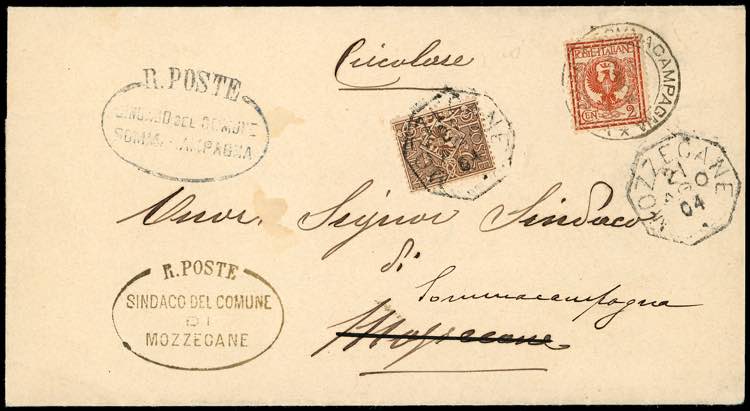 Circolare
R. POSTE
SINDACO DEL COMUNE
SOMMACAMPAGNA
POSTE ITALIANE
CEN. 2
SOMMACAMPAGNA
MOZZECANE
10
04
MOZZECANE
04
Onor. Signor Sindaco
di
Sommacampagna
Mozzecane
R. POSTE
SINDACO DEL COMUNE
DI
MOZZECANE